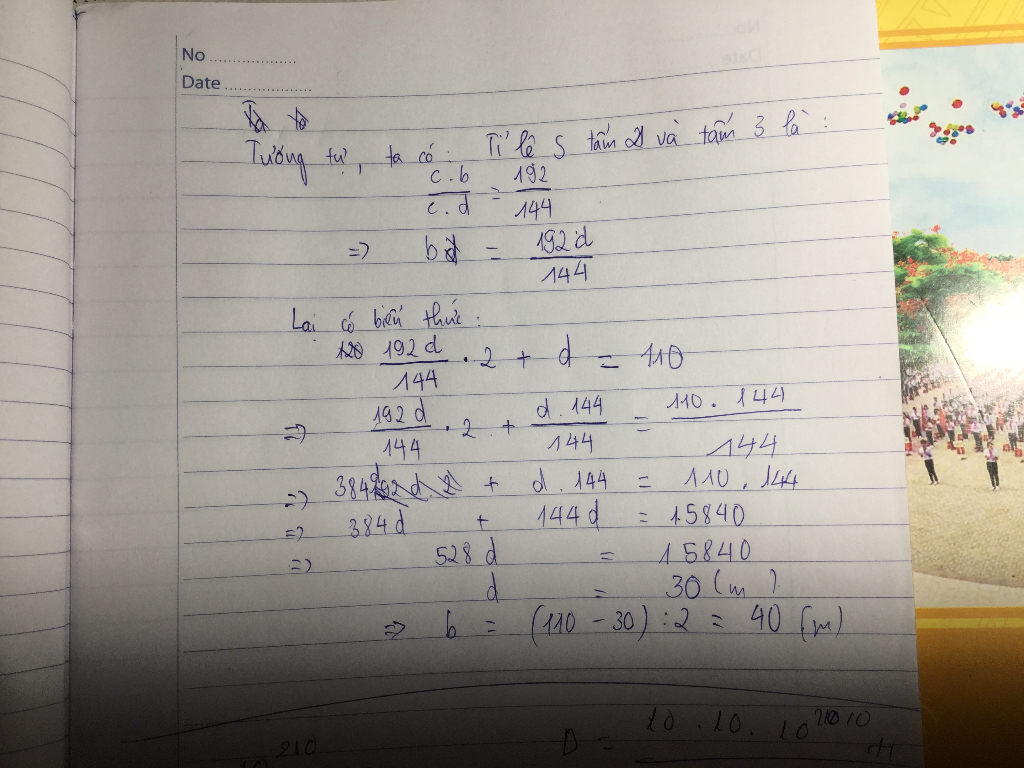 No
Date
Tương tự, ta có: Tỉ lệ S tấm 2 và tấm 3 là:
c.b / c.d = 192 / 144
=> b = 192d / 144
Lại có biến thức:
192d / 144 . 2 + d = 110
=> 192d / 144 . 2 + d.144 / 144 = 110.144 / 144
=> 384d + d.144 = 110.144
=> 384d + 144d = 15840
=> 528d = 15840
d = 30 (m)
=> b = (110 - 30) : 2 = 40 (m)
D = 10.10.10
210